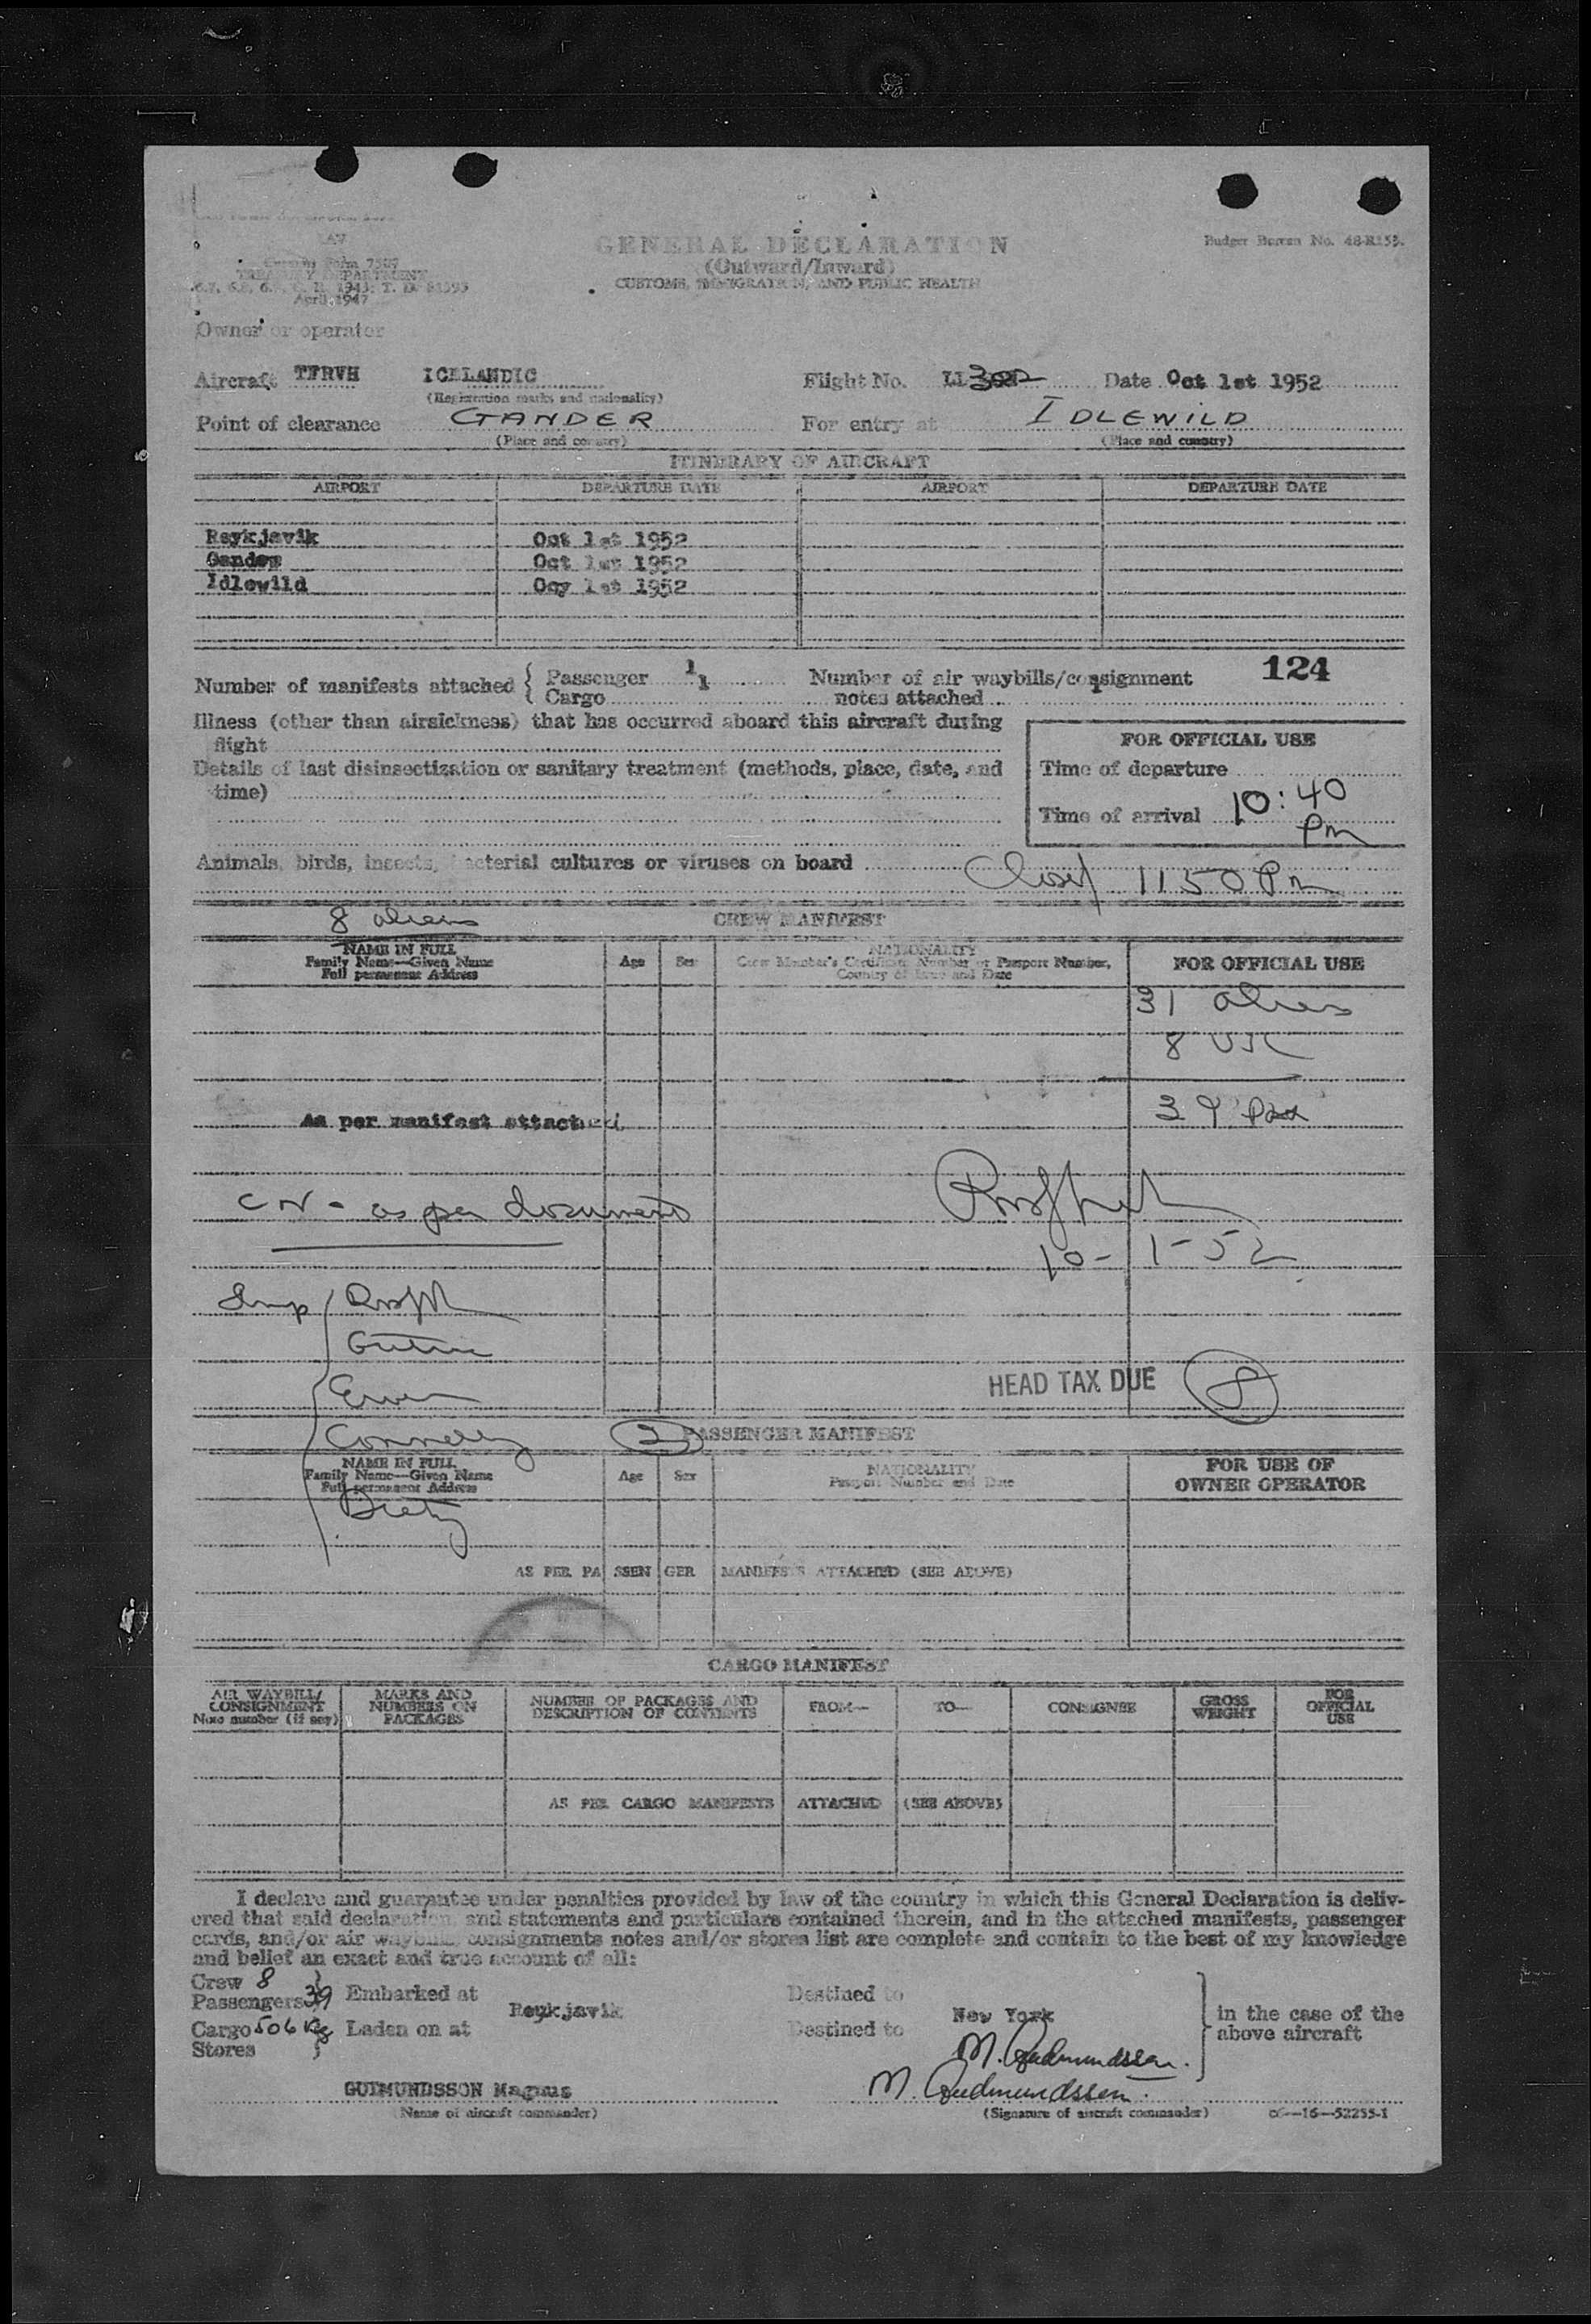 GENERAL DECLARATION
(Outward/Inward)
CUSTOMS, IMMIGRATION, AND PUBLIC HEALTH
Budget Bureau No. 48-R155.
Customs Form 7507
TREASURY DEPARTMENT
April 1947
Owner or operator
Aircraft TFRVH ICELANDIC Flight No. LL Date Oct 1st 1952
(Registration marks and nationality)
Point of clearance GANDER For entry at IDLEWILD
(Place and country) (Place and country)
ITINERARY OF AIRCRAFT
AIRPORT DEPARTURE DATE AIRPORT DEPARTURE DATE
Reykjavik Oct 1st 1952
Gander Oct 1st 1952
Idlewild Ocy 1st 1952
124
Number of manifests attached { Passenger 1 Number of air waybills/consignment
Cargo 1 notes attached
Illness (other than airsickness) that has occurred aboard this aircraft during
flight
FOR OFFICIAL USE
Details of last disinsectization or sanitary treatment (methods, place, date, and
time)
Time of departure
Time of arrival 10:40
Pm
Animals, birds, insects, bacterial cultures or viruses on board
Closed 1150 Pm
8 aliens CREW MANIFEST
NAME IN FULL
Family Name—Given Name
Full permanent Address
Age Sex
NATIONALITY
Crew Member's Certificate Number or Passport Number,
Country of Issue and Date
FOR OFFICIAL USE
31 aliens
8 USC
39 pax
As per manifest attached
CN - as per documents
10-1-52
Insp
Connelly
HEAD TAX DUE 8
2 PASSENGER MANIFEST
NAME IN FULL
Family Name—Given Name
Full permanent Address
Age Sex
NATIONALITY
Passport Number and Date
FOR USE OF
OWNER OPERATOR
AS PER PASSENGER MANIFESTS ATTACHED (SEE ABOVE)
CARGO MANIFEST
AIR WAYBILL/
CONSIGNMENT
Note number (if any)
MARKS AND
NUMBERS ON
PACKAGES
NUMBER OF PACKAGES AND
DESCRIPTION OF CONTENTS
FROM— TO— CONSIGNEE
GROSS
WEIGHT
FOR
OFFICIAL
USE
AS PER CARGO MANIFESTS ATTACHED (SEE ABOVE)
I declare and guarantee under penalties provided by law of the country in which this General Declaration is deliv-
ered that said declaration and statements and particulars contained therein, and in the attached manifests, passenger
cards, and/or air waybills, consignments notes and/or stores list are complete and contain to the best of my knowledge
and belief an exact and true account of all:
Crew 8
Passengers 39 } Embarked at Reykjavik Destined to New York
Cargo 506 Kg Laden on at Destined to
Stores
in the case of the
above aircraft
M. Gudmundsson.
GUDMUNDSSON Magnus M. Gudmundsson.
(Name of aircraft commander) (Signature of aircraft commander) 16—52255-1